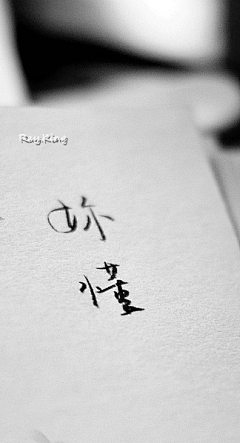 Ray.King
妳
懂